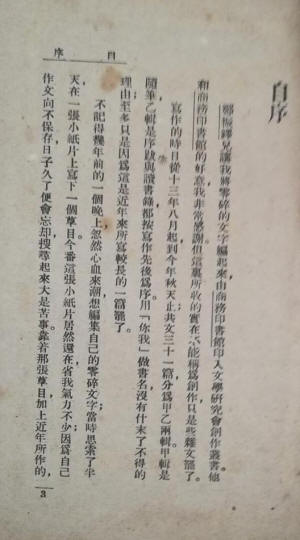 自序
自序
鄭振鐸兄讓我將零碎的文字編起來，由商務印書館印入文學研究會創作叢書。他
和商務印書館的好意，我非常感謝；但這裏所收的實在不能稱爲創作，只是些雜文罷了。
寫作的時日從十三年八月起到今年秋天止，共文三十一篇，分爲甲乙兩輯：甲輯是
隨筆，乙輯是序跋與讀書錄，都按寫作先後爲序。用「你我」做書名，沒有什末了不得的
理由；至多只是因爲這是近年來所寫較長的一篇罷了。
不記得幾年前的一個晚上，忽然心血來潮，想編集自己的零碎文字；當時思索了半
天，在一張小紙片上寫下一個草目。今番這張小紙片居然還在，省我氣力不少；因爲自己
作文向不保存，日子久了便會忘却，搜尋起來大是苦事。靠着那張草目，加上近年所作的，
3